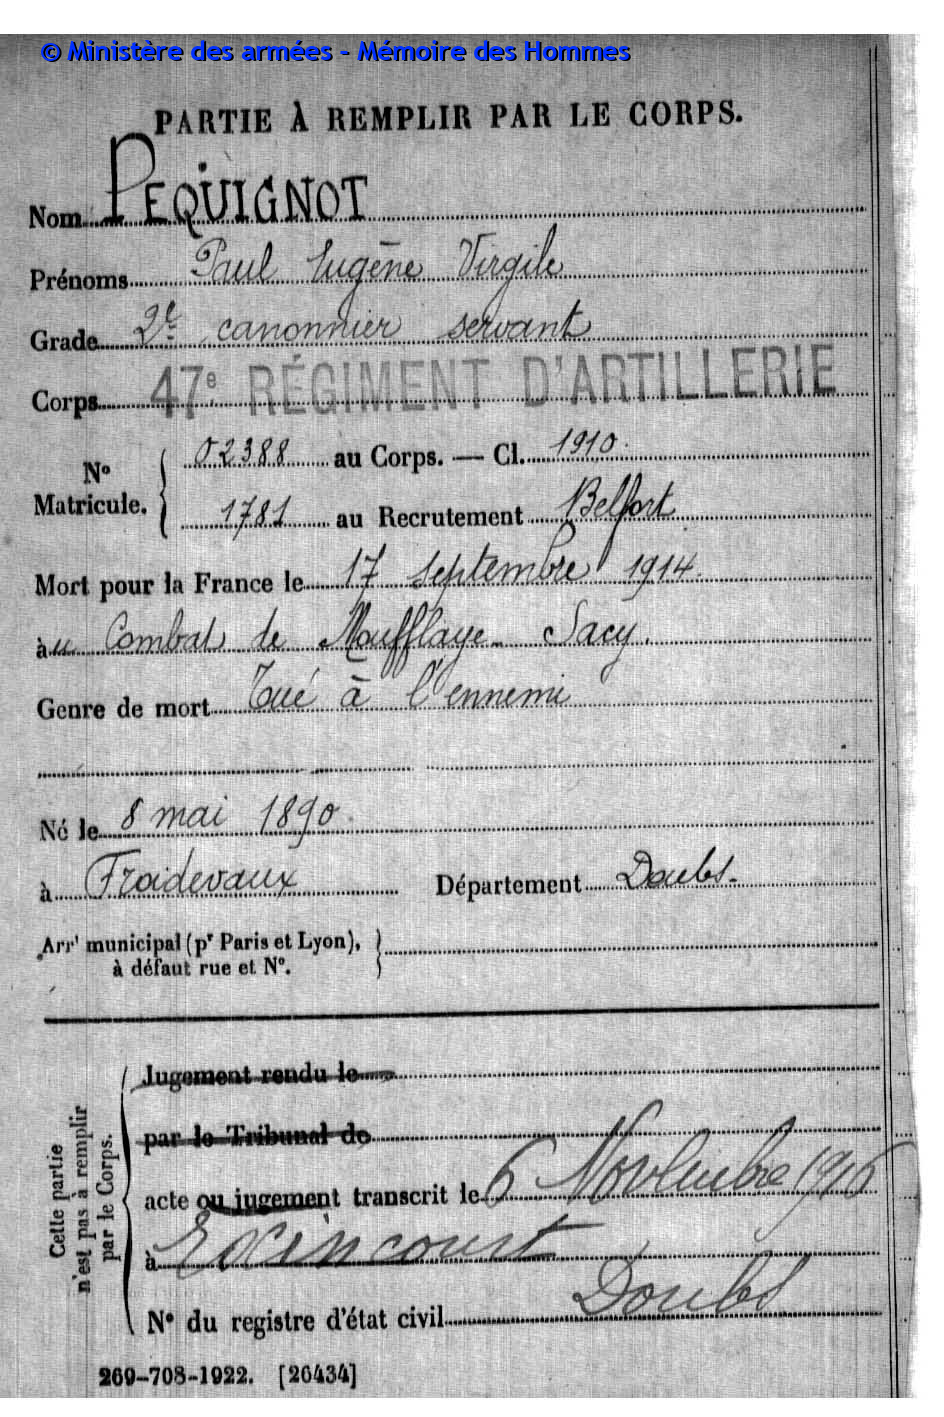 © Ministère des armées - Mémoire des Hommes
PARTIE À REMPLIR PAR LE CORPS.
Nom PEQUIGNOT
Prénoms Paul Eugène Virgile
Grade 2e canonnier servant
Corps 47e RÉGIMENT D'ARTILLERIE
No Matricule. 02388 au Corps. — Cl. 1910
1781 au Recrutement Belfort
Mort pour la France le 17 Septembre 1914.
à u Combat de Moufflaye - Sacy.
Genre de mort Tué à l'ennemi
Né le 8 mai 1890
à Froidevaux Département Doubs.
Arrt municipal (pr Paris et Lyon),
à défaut rue et No.
Cette partie
n'est pas à remplir
par le Corps.
Jugement rendu le
par le Tribunal de
acte ou jugement transcrit le 6 Novembre 1916
à Exincourt
Doubs
No du registre d'état civil
269-708-1922. [26434]